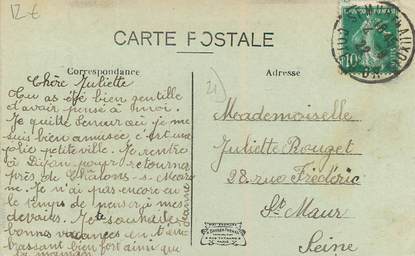 12 €
CARTE POSTALE
Correspondance
Adresse
21)
Chère Juliette
Tu as été bien gentille
d'avoir pensé à moi.
Je quitte Semur où je me
suis bien amusée c'est une
jolie petite ville. Je rentre
à Dijon pour retourner
près de Châlons-s-Mar
ne. Je n'ai pas encore eu
le temps de penser à mes
devoirs. Je te souhaite
bonnes vacances en t'em
brassant bien fort ainsi que
ta maman
Jeanne
Mademoiselle
Juliette Rouget
28 rue Frédéric
St Maur
Seine
10